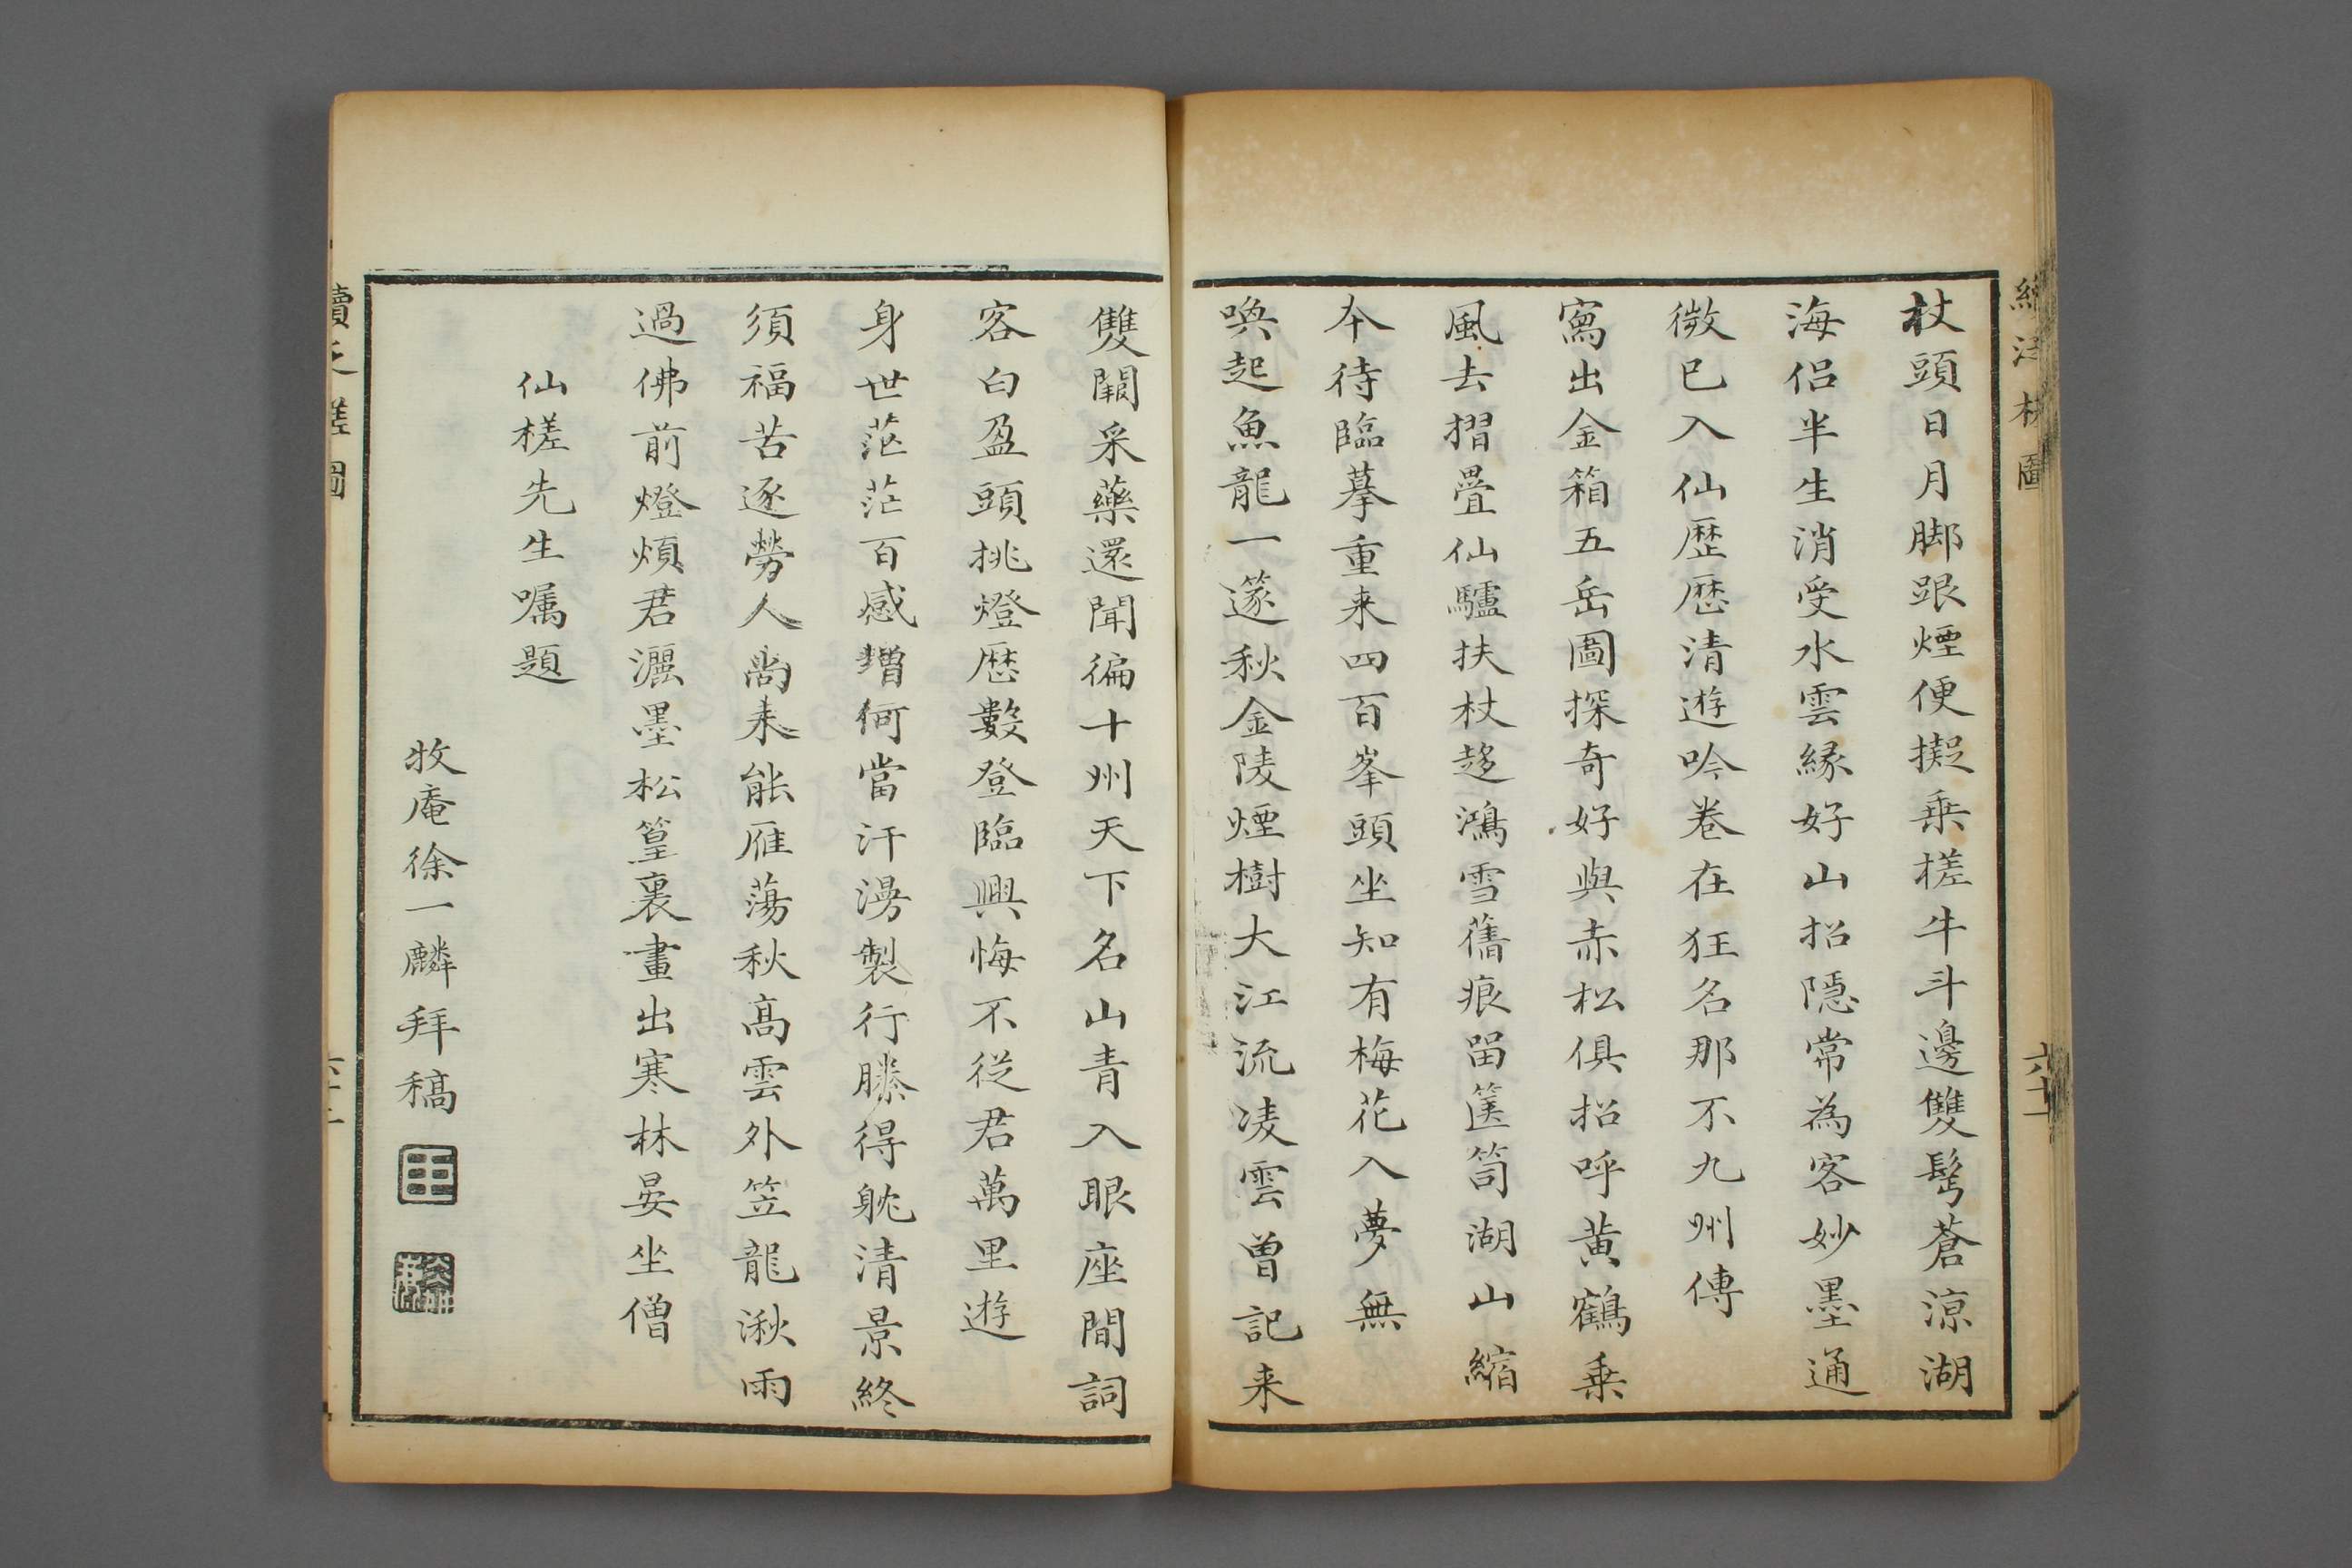 杖頭日月脚跟煙便擬乗槎牛斗邊雙髩蒼涼湖
海侣半生消受水雲緣好山招隱常為客妙墨通
微已入仙歷歷清遊吟卷在狂名那不九州傳
寫出金箱五岳圖探奇好與赤松俱招呼黃鶴乗
風去摺疊仙驢扶杖趍鴻雪舊痕留篋笥湖山縮
本待臨摹重来四百峯頭坐知有梅花入夢無
喚起魚龍一篴秋金陵煙樹大江流凌雲曾記来
雙闕采藥還聞徧十州天下名山青入眼座間詞
客白盈頭挑燈歷數登臨興悔不從君萬里遊
身世茫茫百感增何當汗漫製行縢得躭清景終
須福苦逐勞人尚未能雁蕩秋高雲外笠龍湫雨
過佛前燈煩君灑墨松篁裏畫出寒林晏坐僧
仙槎先生囑題
牧庵徐一麟拜稿